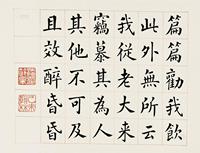 篇篇勸我飲
此外無所云
我從老大来
竊慕其為人
其他不可及
且效醉昏昏